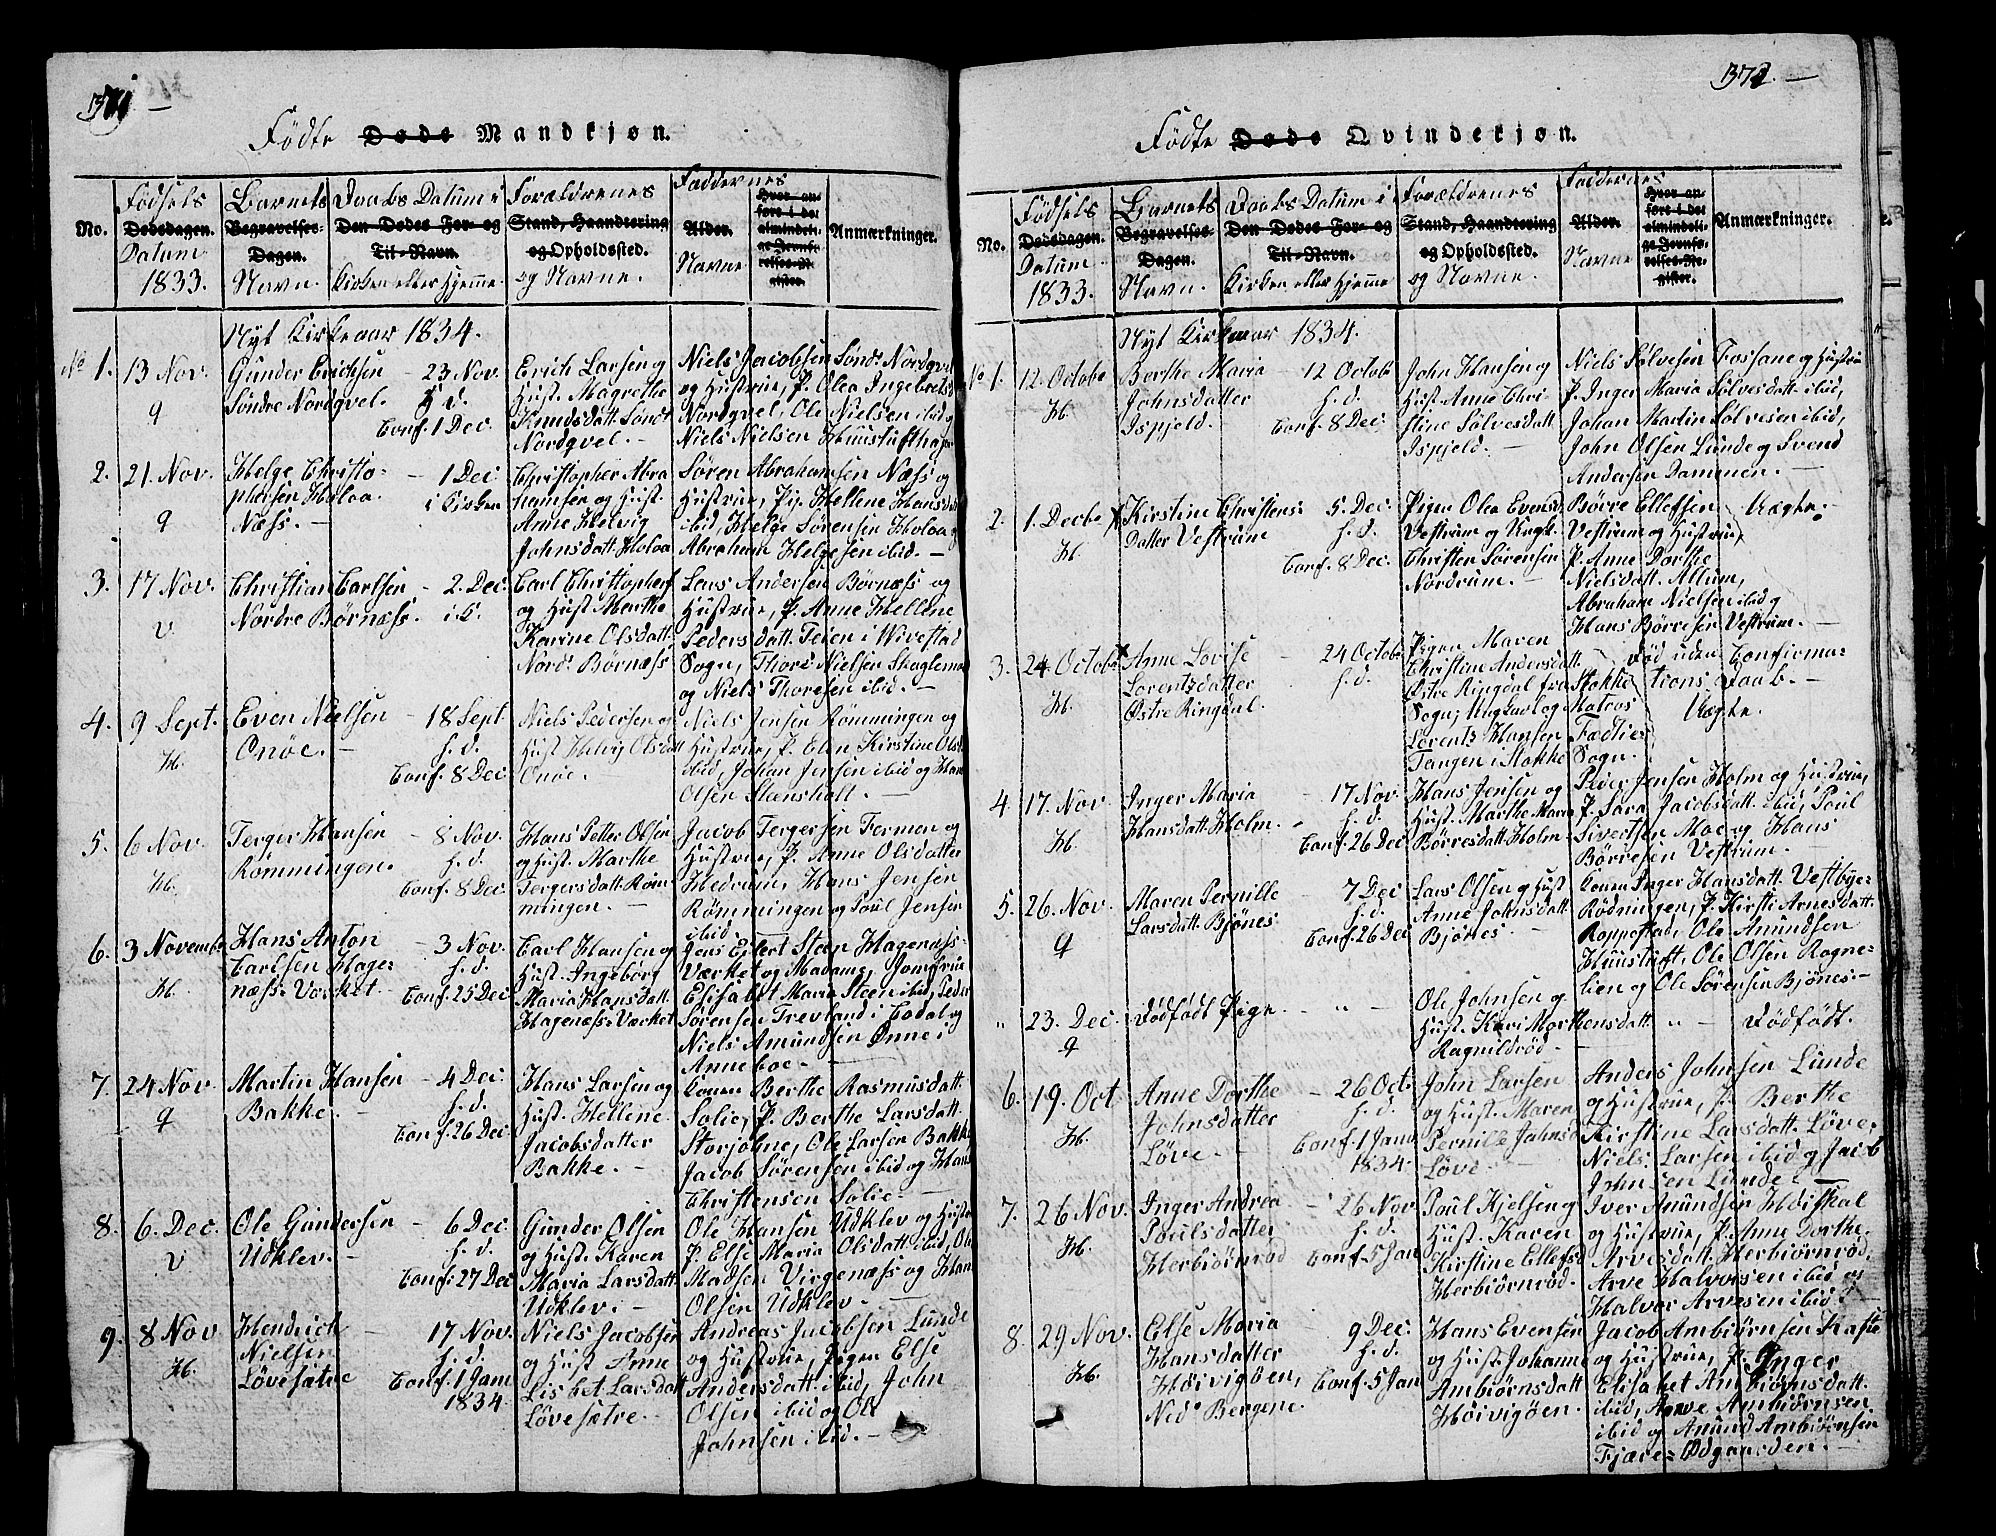 371 —
Fødte Døde Mandkjøn.
No.
Fødsels
Dødsdagen.
Datum
1833.
Barnets
Begravelses-
Dagen.
Navn.
Daabs Datum i
Den Dødes For- og
Til-Navn.
Kirken eller Hjemme
Forældrenes
Stand, Haandtering
og Opholdssted.
og Navne.
Faddernes
Alder.
Navne
Hvor an-
ført i det
almindeli-
ge Jevnfø-
relses-Re-
gister.
Anmærkninger.
Nyt Kirkeaar 1834.
No 1.
13 Nov.
q
Gunder Erichsen
Søndre Nordqvel.
23 Nov.
h. d.
Conf. 1 Dec.
Erich Larsen og
Hust. Magrethe
Knudsdatt. Søndr.
Nordqvel. —
Niels Jacobsen Sønd: Nordqvel
og Hustrue, P. Olea Ingebretsd.
Nordqvel, Ole Nielsen ibid og
Niels Nielsen Huustufthagen
2.
21. Nov.
q
Helge Christo-
phersen Holoa
Næss. —
1 Dec.
i Kirken
Christopher Abra
hamsen og Hust.
Anne Helvig
Johnsdatt. Holoa
Søren Abrahamsen Næss og
Hustrue, Pig. Hellene Hansdatt
ibid, Helge Sørensen Holoa og
Abraham Helgesen ibid. —
3.
17 Nov.
v
Christian Carlsen
Nordre Børnæss.
2. Dec.
i K.
Carl Christophers
og Hust. Marthe
Karine Olsdatt.
Nord: Børnæss
Lars Andersen Børnæss og
Hustrue, P. Anne Hellene
Pedersdatt. Teien i Wivestad
Sogn, Thore Nielsen Skoglemoe
og Niels Thoresen ibid. —
4.
9 Sept.
H.
Even Nielsen
Onøe. —
18 Sept
h. d.
Conf. 8 Dec.
Niels Pedersen og
Hust. Helvig Olsdatt
Onøe. —
Niels Jensen Rømmingen og
Hustrue, P. Elen Kirstine Olsd.
ibid, Johan Jensen ibid og Hans
Olsen Steensholt. —
5.
6 Nov.
H.
Terger Hansen
Rømmingen.
8 Nov.
h. d.
Conf. 8 Dec.
Hans Petter Olsen
og Hust. Marthe
Tergersdatt. Røm-
mingen. —
Jacob Tergersen Fermen og
Hustrue, P. Anne Olsdatter
Hedrum, Hans Jensen
Rømmingen og Poul Jensen
ibid —
6.
3 Novemb:
H.
Hans Anton
Carlsen Hage-
næss-Værket.
3 Nov.
h. d.
Conf. 25 Dec
Carl Hansen og
Hust. Ingeborg
Maria Hansdatt.
Hagenæss-Værket
Jens Eilert Steen Hagenæss-
Værket og Madame, Jomfrue
Elisabet Maria Steen ibid, Peder
Sørensen Trevland i Codal og
Niels Amundsen Ønne i
Anneboe —
7.
24 Nov
q
Martin Hansen
Bakke. —
4 Dec.
h. d.
Conf. 26 Dec
Hans Larsen og
Hust. Hellene
Jacobsdatter
Bakke. —
Konen Berthe Rasmusdatt.
Solie, P. Berthe Larsdatt.
Storjolne, Ole Larsen Bakke,
Jacob Sørensen ibid og Hans
Christensen Solie. —
8.
6. Dec.
v
Ole Gundersen
Udklev. —
6 Dec.
h. d.
Conf. 27 Dec
Gunder Olsen
og Hust. Karen
Maria Larsdatt.
Udklev. —
Ole Hansen Udklev og Hustrue
P. Else Maria Olsdatt. ibid, Ole
Madsen Virgenæss og Hans
Olsen Udklev. —
9.
8 Nov
H.
Hendrick
Nielsen
Løvesætre
17 Nov.
h. d.
Conf. 1 Jan
1834.
Niels Jacobsen
og Hust. Anne
Lisbet Larsdatt
Løvesætre. —
Andreas Jacobsen Lunde
og Hustrue, Pigen Else
Andersdatt. ibid, John
Olsen ibid og Ole
Johnsen ibid. —
372. —
Fødte Døde Qvindekjøn.
No.
Fødsels
Dødsdagen.
Datum
1833.
Barnets
Begravelses-
Dagen.
Navn.
Daabs Datum i
Den Dødes For- og
Til-Navn.
Kirken eller Hjemme
Forældrenes
Stand, Haandtering
og Opholdssted.
og Navne.
Faddernes
Alder.
Navne
Hvor an-
ført i det
almindeli-
ge Jevnfø-
relses-Re-
gister.
Anmærkninger.
Nyt Kirkeaar 1834.
No 1.
12 Octobr
H.
Berthe Maria
Johnsdatter
Ispjeld.
12 Octob
h. d.
Conf. 8 Dec.
John Hansen og
Hust. Anne Chri-
stine Sølvesdatt.
Ispjeld. —
Niels Sølvesen Fossane og Hustrue
P. Inger Maria Sølvesdatt ibid,
Johan Martin Sølvesen ibid,
John Olsen Lunde og Svend
Andersen Dammen. —
2.
1. Decbr
H.
Kirstine Christens-
Datter Vestrum
5. Dec.
h. d.
Conf. 8 Dec.
Pigen Olea Evensd.
Vestrum og Ungk.
Christen Sørensen
Nordrum. —
Børre Elleffsen
Vestrum og Hustrue,
P. Anne Dorthe
Nielsdatt. Allum,
Abraham Nielsen ibid og
Hans Børresen Vestrum. —
Uægte.
3.
24 Octobr
H.
Anne Lovise
Lorentzdatter
Østre Ringdal.
24 Octobr
h. d.
Pigen Maren
Christine Andersdatt.
Østre Ringdal fra Stokke
Sogn, Ungkarl og Matros
Lorentz Hansen Fædtie-
Tangen i Stokke Sogn.
Død uden Confirma-
tions Daab. —
Uægte.
4
17. Nov.
H.
Inger Maria
Hansdatt. Holm.
17 Nov.
h. d.
Conf. 26 Dec
Hans Jensen og
Hust. Marthe Maria
Børresdatt. Holm
Peder Jensen Holm og Hustrue,
P. Sara Jacobsdatt. ibid, Poul
Sivertsen Moe og Hans
Børresen Vestrum. —
5.
26. Nov.
q
Maren Pernille
Larsdatt. Bjønes.
7 Dec
h. d.
Conf. 26 Dec
Lars Olsen og Hust
Anne Johnsdatt.
Bjønes —
Konen Inger Hansdatt. Vestbye-
Rødningen, P. Kirsti Arnesdatt.
Roppestad, Ole Amundsen
Huustuft, Ole Olsen Ragne-
lien og Ole Sørensen Bjønes. —
"
23. Dec.
q
Dødfødt Pige.
" —
Ole Johnsen og
Hust. Kari Morthensdatt.
Ragnildrød. —
" —
Dødfødt.
6.
19. Oct
H.
Anne Dorthe
Johnsdatter
Løve. —
26 Oct.
h. d.
Conf. 1 Jan
1834.
John Larsen
og Hust. Maren
Pernille Johnsd
Løve. —
Anders Johnsen Lunde
og Hustrue, P. Berthe
Kirstine Larsdatt. Løve,
Niels Larsen ibid og Jacob
Johnsen Lunde. —
7.
26 Nov.
H.
Inger Andrea
Poulsdatter
Herbiørnrød
26 Nov
h. d.
Conf. 5 Jan
Poul Kjelsen og
Hust. Karen
Kirstine Ellefsd.
Herbiørnrød.
Iver Amundsen Høithal
og Hustrue, P. Anne Dorthe
Arvesdatt. Herbiørnrød,
Arve Halvorsen ibid og
Halvor Arvesen ibid. —
8.
29 Nov.
H.
Else Maria
Hansdatter
Høivigøen,
Ned: Bergene.
9 Dec.
h. d.
Conf. 5 Jan
Hans Evensen
og Hust. Johanne
Ambiørnsdatt.
Høivigøen.
Jacob Ambiørnsen
og Hustrue, P. Inger
Elisabet Ambiørnsdatt.
ibid, Arve Ambiørnsen
ibid og Amund Ambiørnsen
Fjære-Odgaarden. —